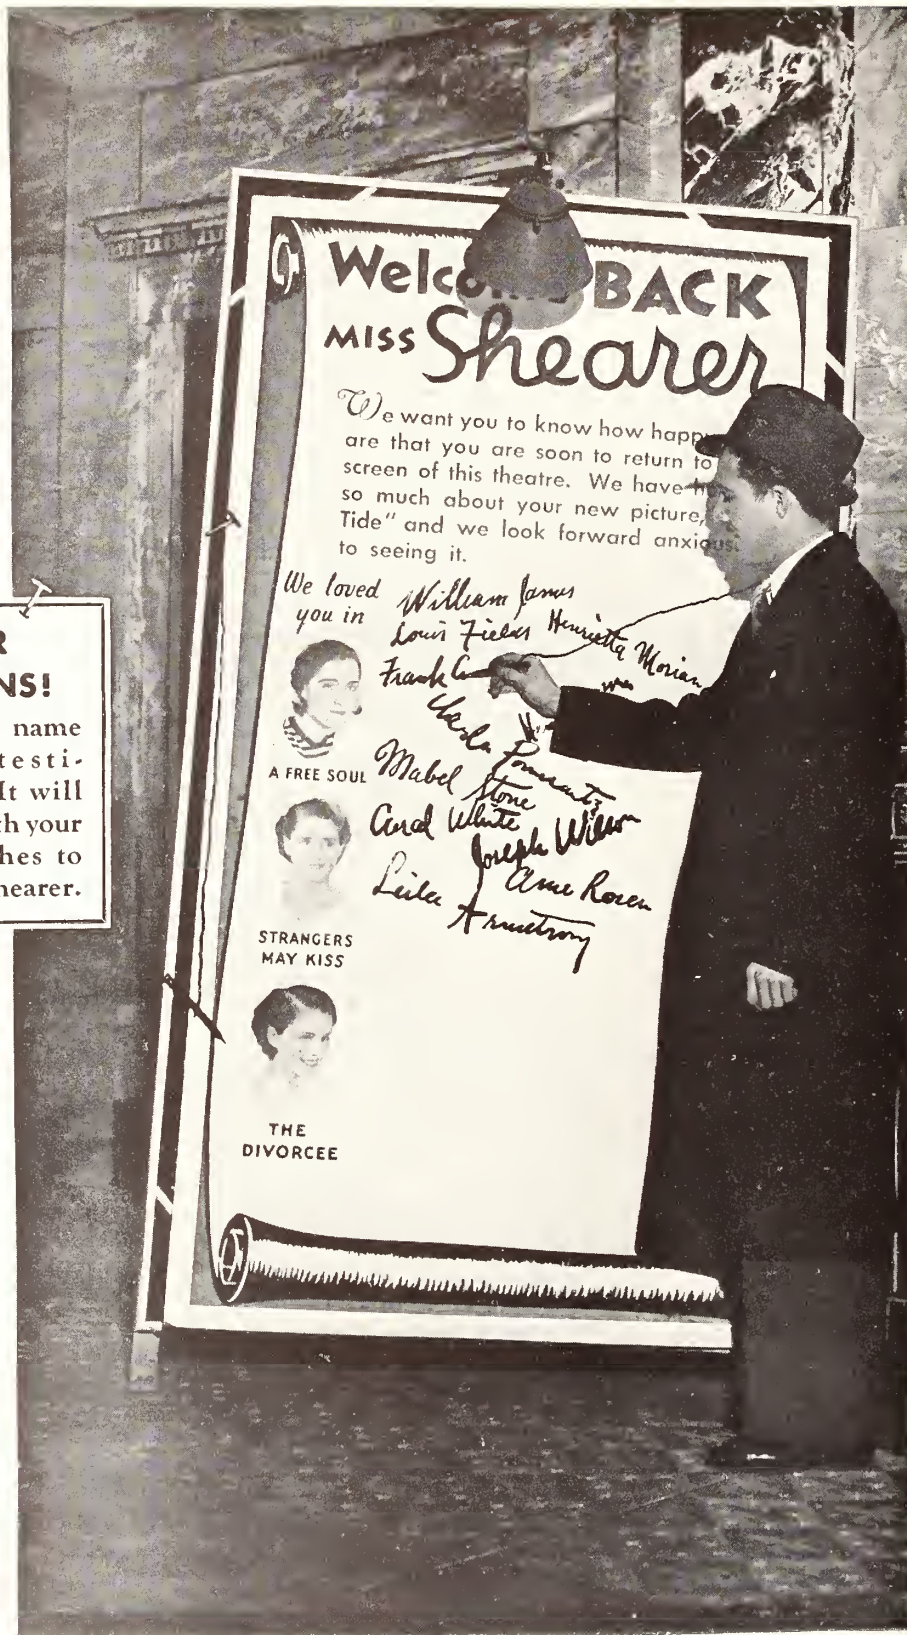 Welco BACK
MISS Shearer
We want you to know how happy
are that you are soon to return to
screen of this theatre. We have
so much about your new picture,
Tide" and we look forward anxious
to seeing it.
We loved
you in
William James
Louis Fields
Henrietta Morian
Frank
A FREE SOUL
Mabel
Stone
Carol White
Joseph Wilson
Anne Rosen
Leila
Armstrong
STRANGERS
MAY KISS
THE
DIVORCEE
R
NS!
name
testi-
It will
th your
hes to
hearer.